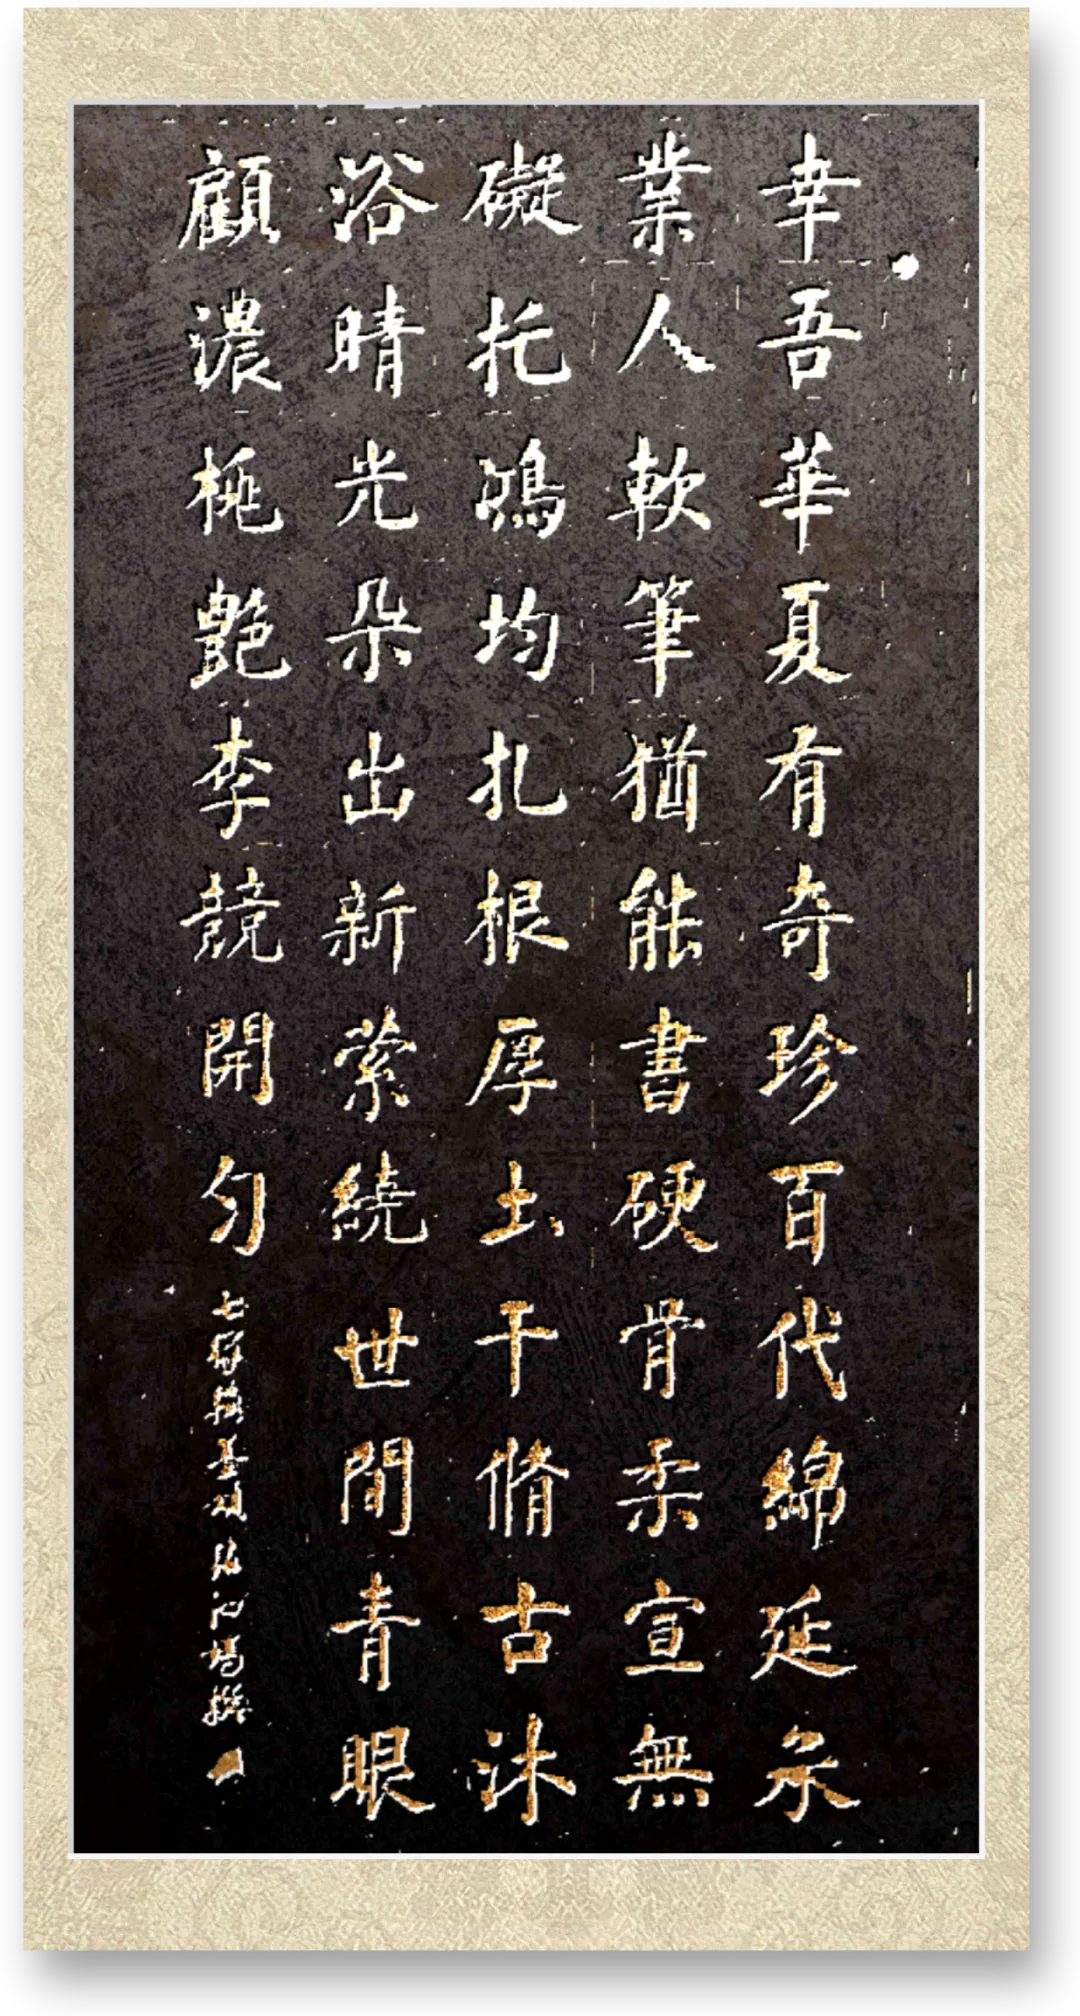 幸吾華夏有奇珍百代綿延承
業人軟筆猶能書硬骨柔宣無
礙托鴻均扎根厚土干脩古沐
浴晴光朵出新縈繞世間青眼
顧濃桃艷李競開勻